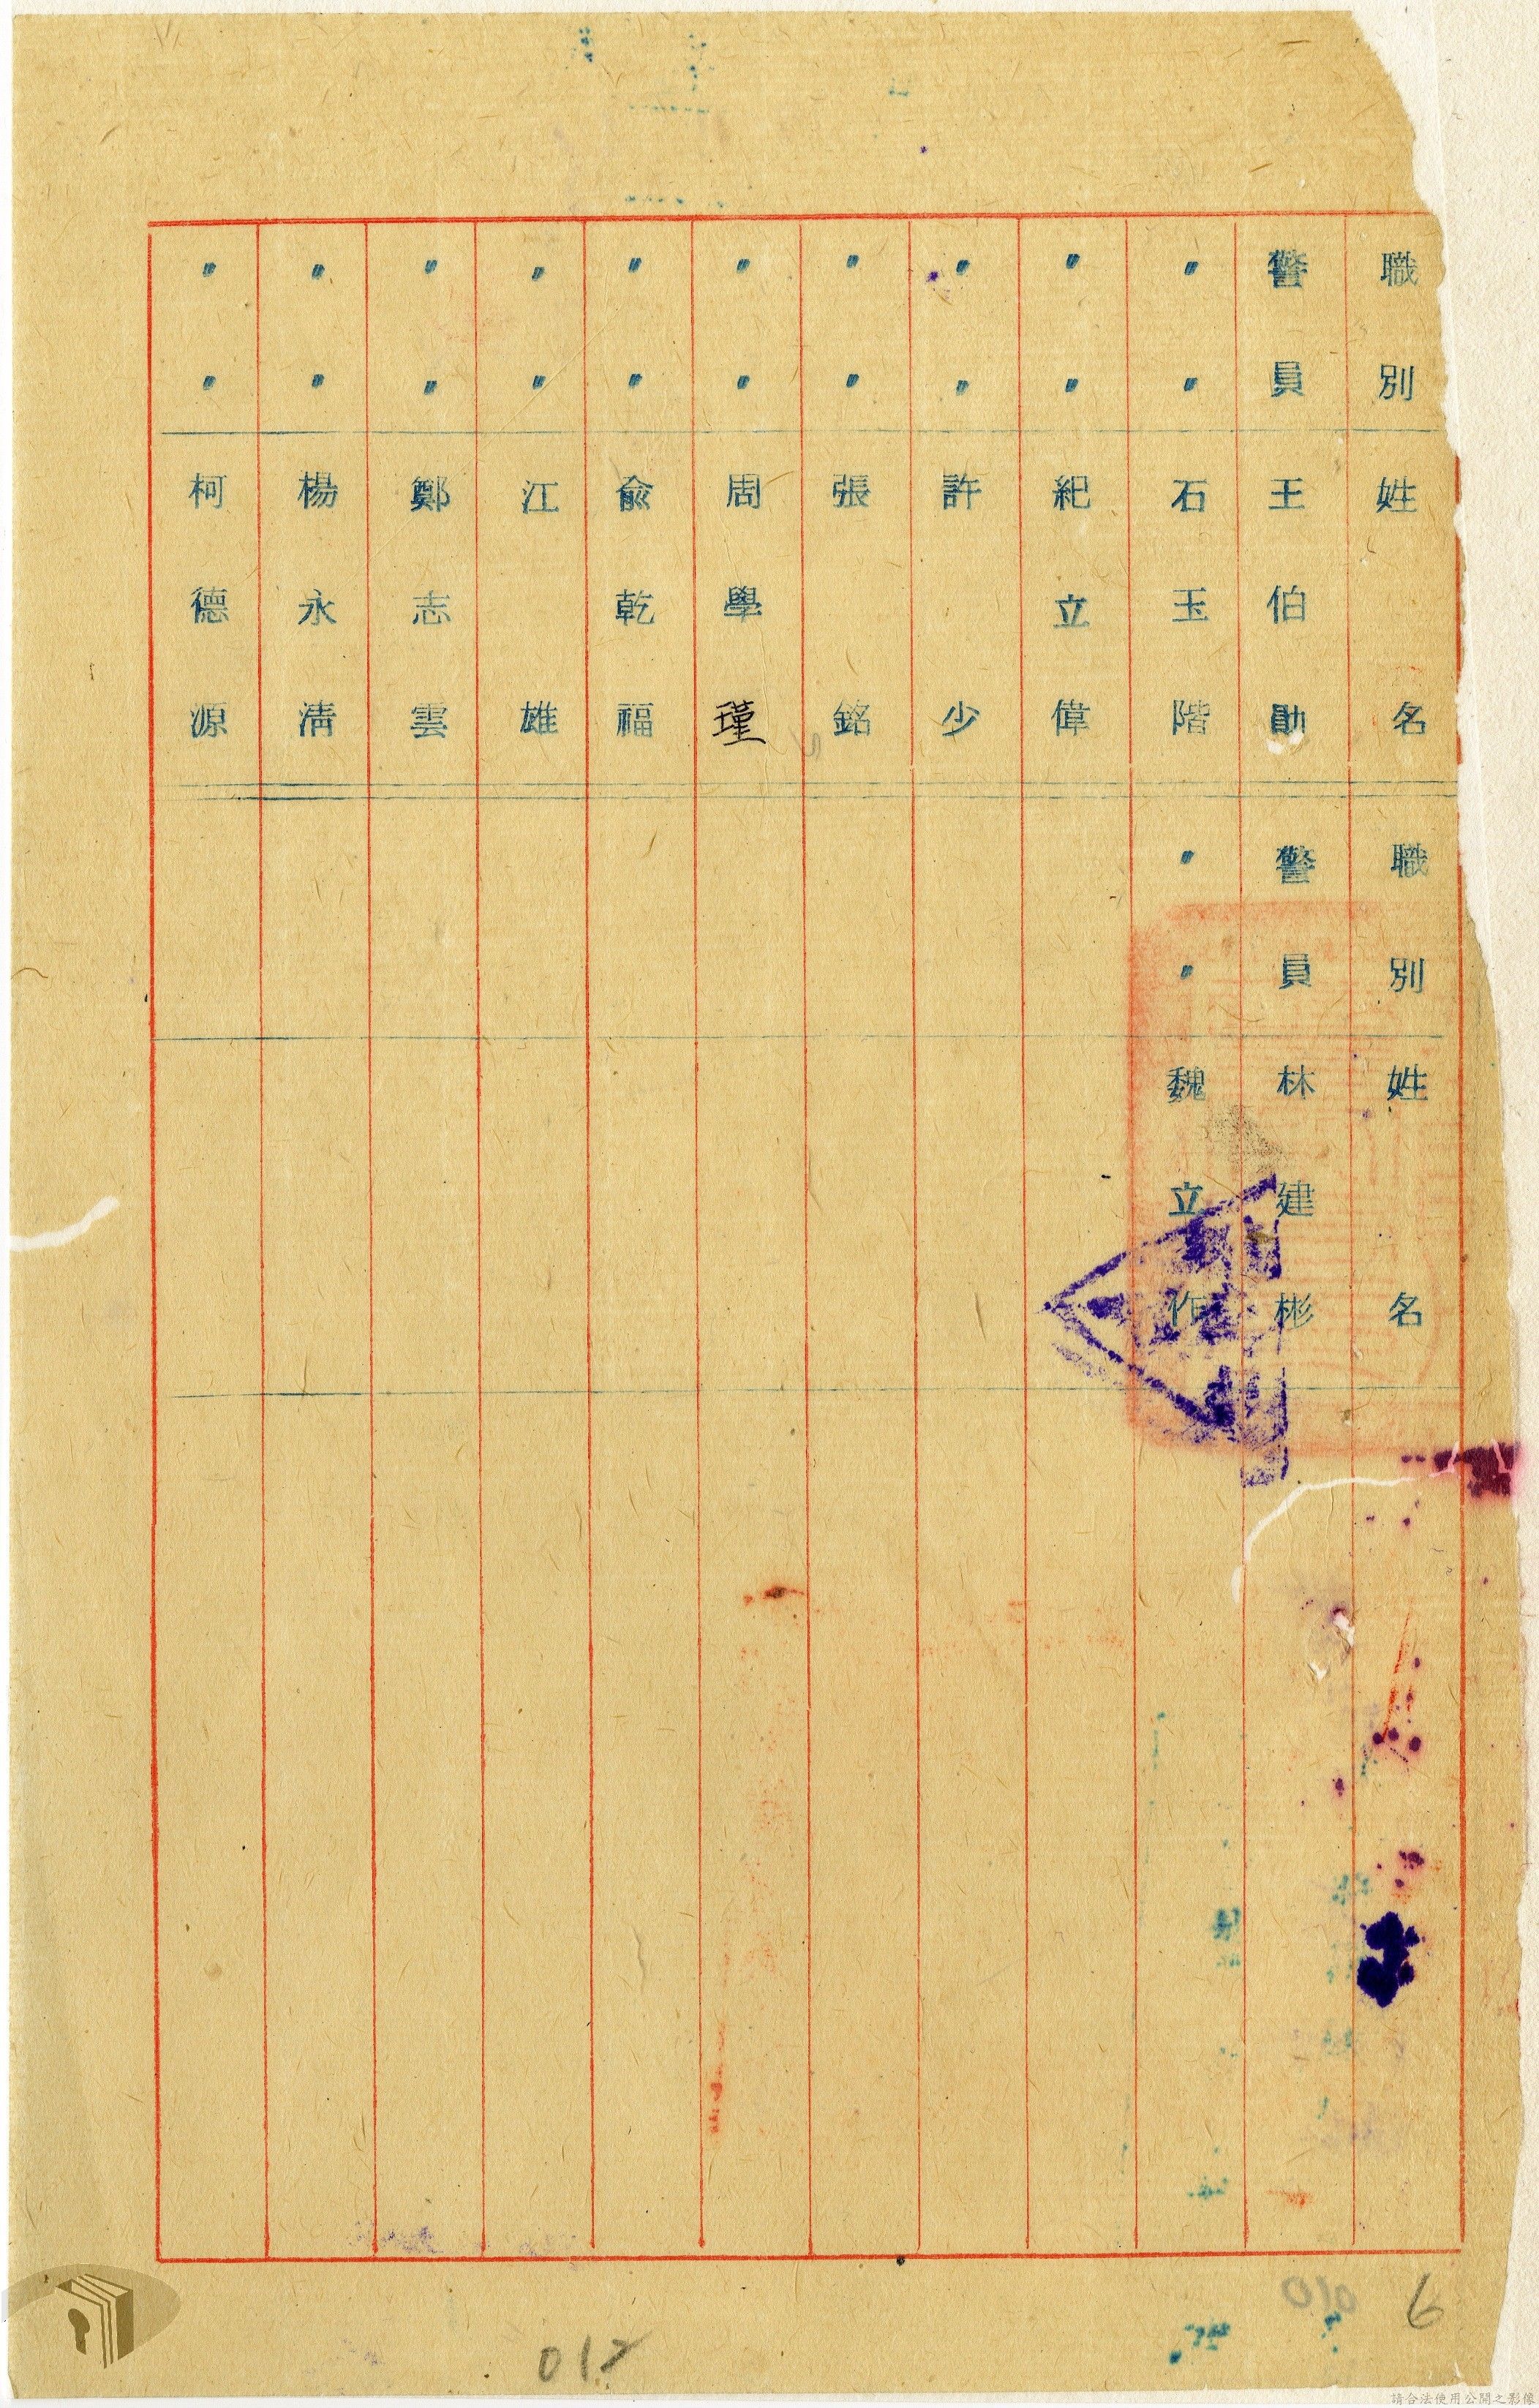 職別 姓名
警員 王伯勛
〃〃 石玉階
〃〃 紀立偉
〃〃 許少
〃〃 張銘
〃〃 周學瑾
〃〃 俞乾福
〃〃 江雄
〃〃 鄭志雲
〃〃 楊永清
〃〃 柯德源
職別 姓名
警員 林建彬
〃〃 魏立作
010
6
012
請合法使用公開之影像